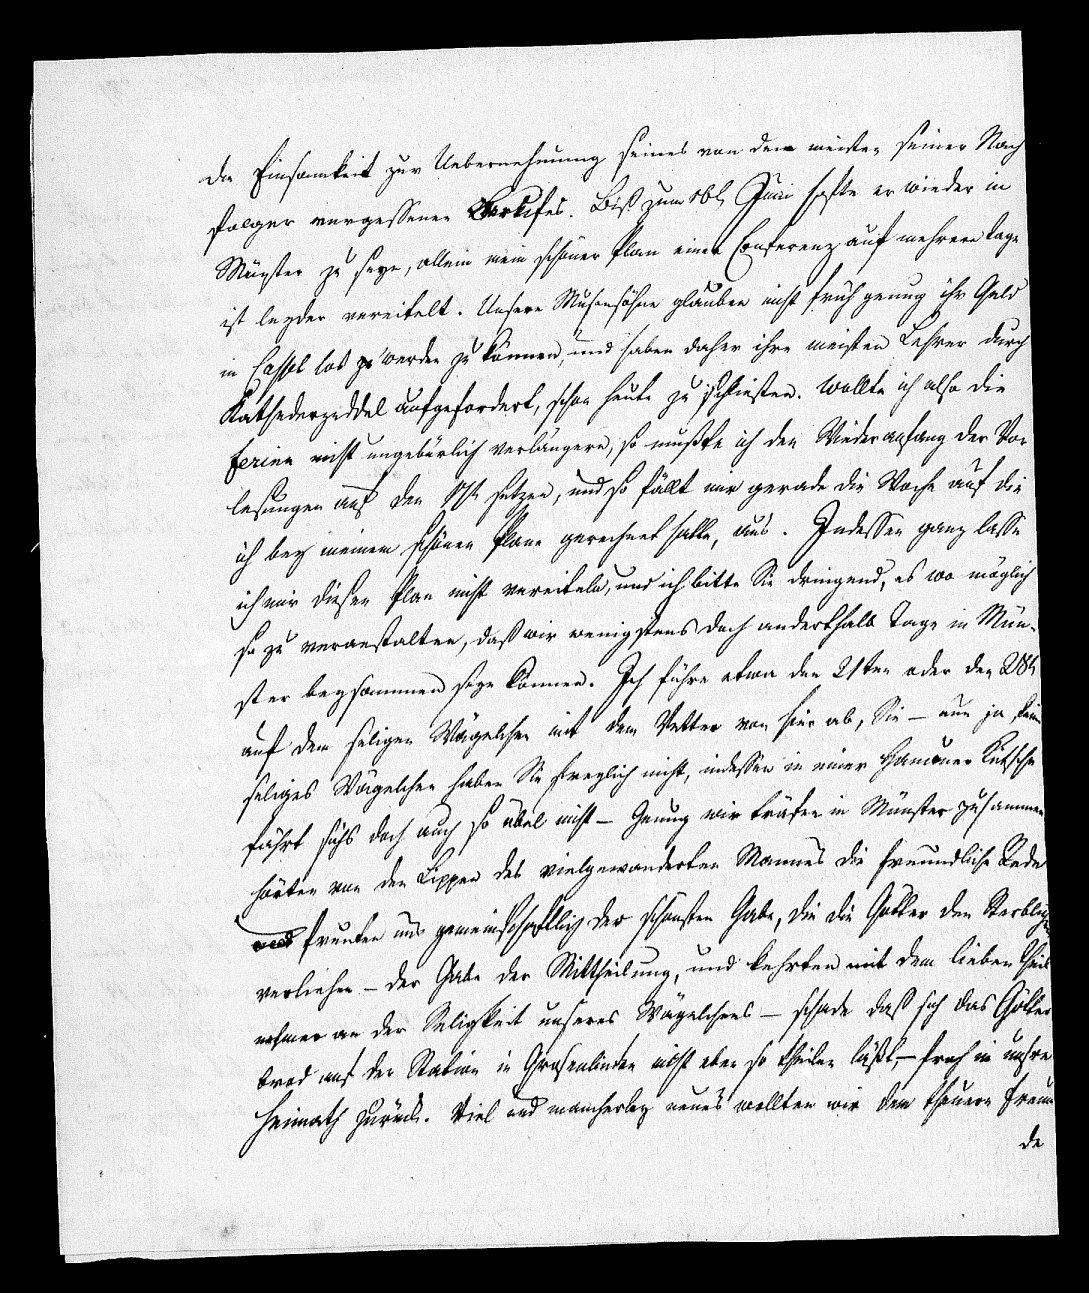 der Einsamkeit zur Uebernehmung seines von den meisten seiner Nach
folger vergessenen Berufes. Biß zum 16t Juni hoffte er wieder in
Münster zu seyn, allein mein schöner Plan einer Conferenz auf mehrere Tage
ist leyder vereitelt. Unsere Musensöhne glauben nicht früh genug ihr Geld
in Cassel los zu werden zu können, und haben daher ihre meisten Lehrer durch
Kathederzeddel aufgefordert, schon heute zu schließen. Wollte ich also die
Ferien nicht ungebürlich verlängern, so mußte ich den Wiederanfang der Vor
lesungen auf den 17t setzen, und so fällt mir gerade die Woche auf die
ich bey meinem schönen Plane gerechnet hatte, aus. Indessen ganz lasse
ich mir diesen Plan nicht vereiteln, und ich bitte Sie dringend, es wo möglich
so zu veranstalten, daß wir wenigstens doch anderthalb Tage in Mün-
ster beysammen seyn können. Ich führe etwa den 21ten oder den 28t
auf dem seligen Wägelchen mit dem Vetter von hier ab, Sie – nun ja, kein
seliges Wägelchen haben Sie freylich nicht, indessen in einer Hanauer Kutsche
fährt sichs doch auch so übel nicht – Genug wir träfen in Münster zusammen
hörten von den Lippen des vielgewanderten Mannes die freundliche Rede
und freuten uns gemeinschaftlich der schönsten Gabe, die die Götter den Sterblichen
verliehen – der Gabe der Mittheilung, und kehrten mit dem lieben Theil
nehmer an der Seligkeit unseres Wägelchens – schade daß sich das Götter
brod auf der Station in Grosenlinden nicht eben so theilen läßt, – froh in unsre
Heimath zurück. Viel und mancherley neues wollten wir dem theuern Freun
de